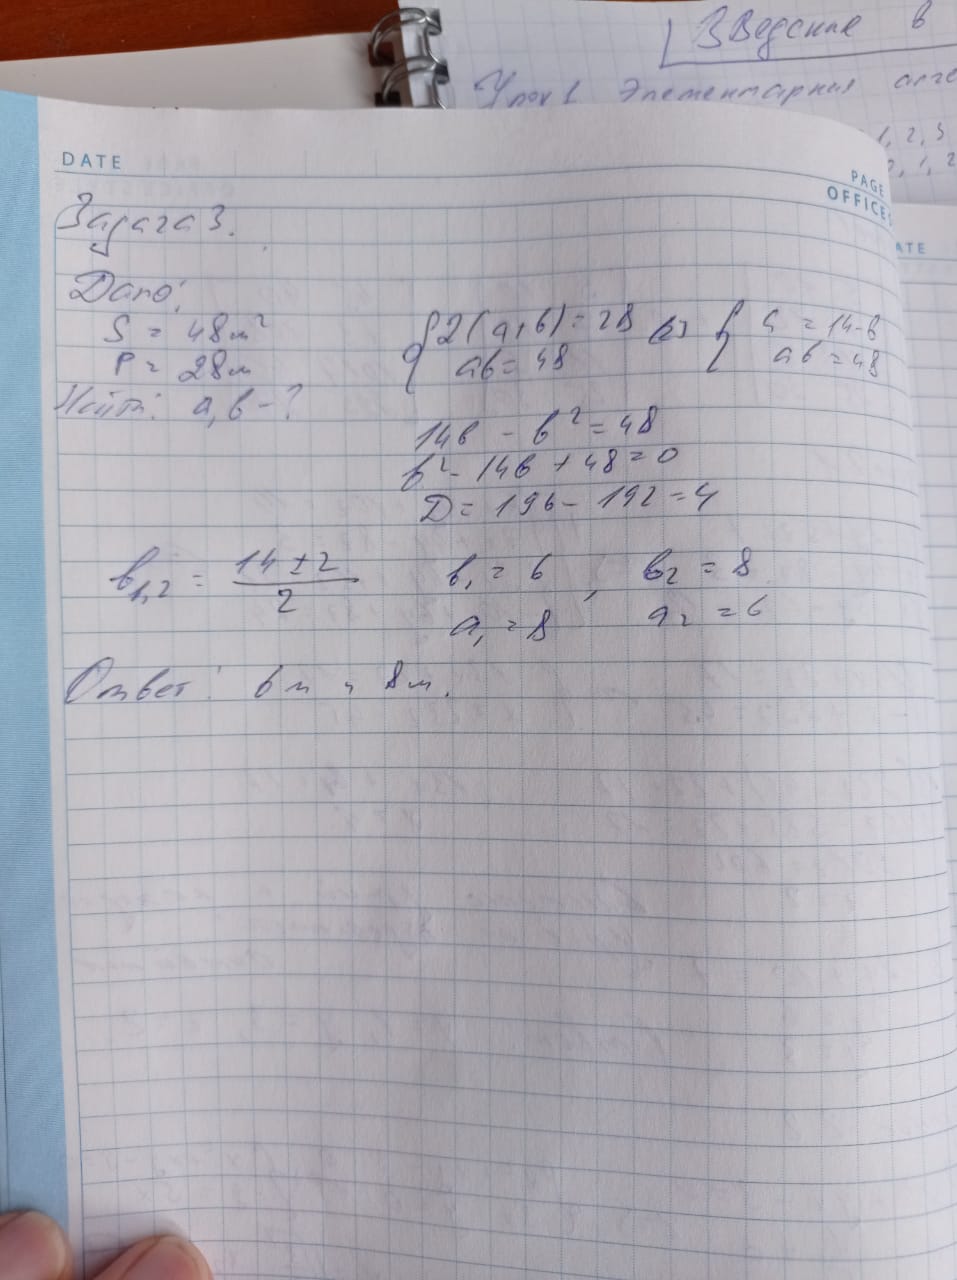 Введение в
Урок 1 Элементарная алге
1, 2, 3
0, 1, 2
DATE
PAGE
OFFICE
ATE
Задача 3.
Дано:
S = 48 м²
P = 28 м
Найти: a, b - ?
{ 2(a+b) = 28 <=> { a = 14-b
ab = 48 ab = 48
14b - b² = 48
b² - 14b + 48 = 0
D = 196 - 192 = 4
b₁,₂ = (14 ± 2)/2 b₁ = 6, b₂ = 8
a₁ = 8 a₂ = 6
Ответ: 6 м и 8 м.